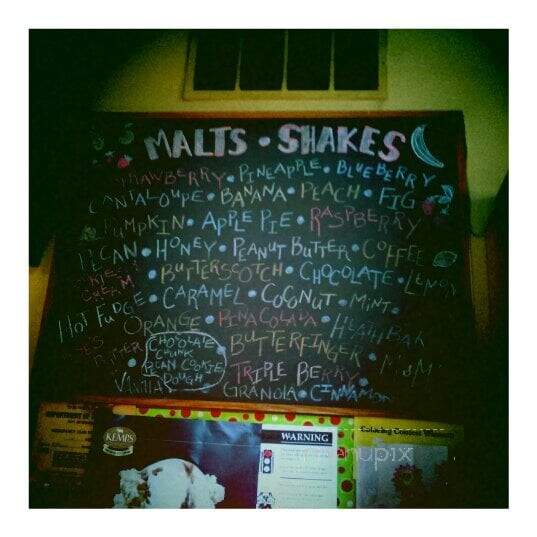 MALTS • SHAKES
STRAWBERRY • PINEAPPLE • BLUEBERRY
CANTALOUPE • BANANA • PEACH • FIG
PUMPKIN • APPLE PIE • RASPBERRY
PECAN • HONEY • PEANUT BUTTER • COFFEE
• BUTTERSCOTCH • CHOCOLATE • LEMON
CREAM
HOT FUDGE • CARAMEL • COCONUT • MINT •
ORANGE • PINA COLADA • HEATH BAR
CHOCOLATE
CHUNK
PECAN COOKIE
DOUGH
BUTTERFINGER • M&M
VANILLA
TRIPLE BERRY
GRANOLA • CINNAMON
KEMPS
WARNING
Coloring Contest
menupix